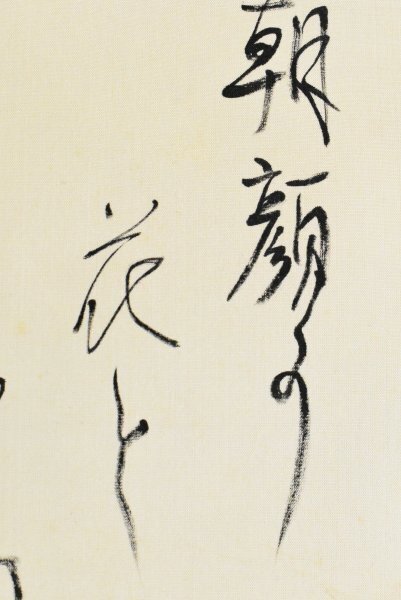 朝顔の
花と